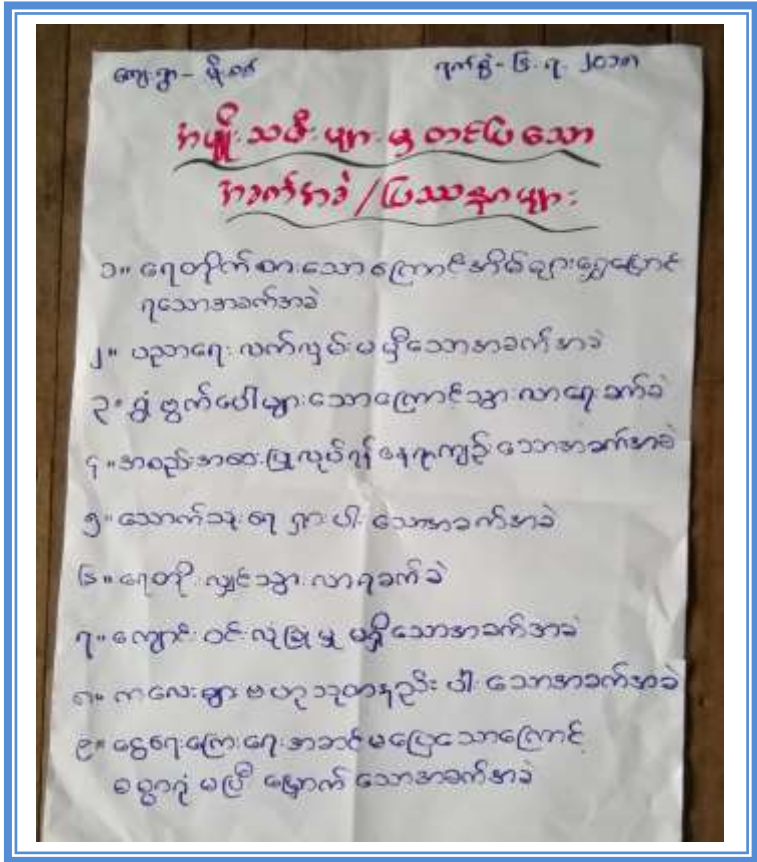 ကျေးရွာ - မှိုးစပ် ရက်စွဲ - ၆.၇.၂၀၁၈
အမျိုးသမီးများမှ တင်ပြသော
အခက်အခဲ/ပြဿနာများ
၁။ ရေတိုက်စားသောကြောင့်အိမ်များရွှေ့ပြောင်း
ရသောအခက်အခဲ
၂။ ပညာရေးလက်လှမ်းမမှီသောအခက်အခဲ
၃။ ရွှံ့ဗွက်ပေါများသောကြောင့်သွားလာရေးခက်ခဲ
၄။ အစည်းအဝေးပြုလုပ်ရန်နေရာကျဉ်းသောအခက်အခဲ
၅။ သောက်သုံးရေရှားပါးသောအခက်အခဲ
၆။ ရေတိုးလျှင်သွားလာရခက်ခဲ
၇။ ကျောင်းဝင်းလုံခြုံမှုမရှိသောအခက်အခဲ
၈။ ကလေးများဗဟုသုတနည်းပါးသောအခက်အခဲ
၉။ ငွေရေးကြေးရေးအဆင်မပြေသောကြောင့်
စပွာရုံမပြီးမြောက်သောအခက်အခဲ